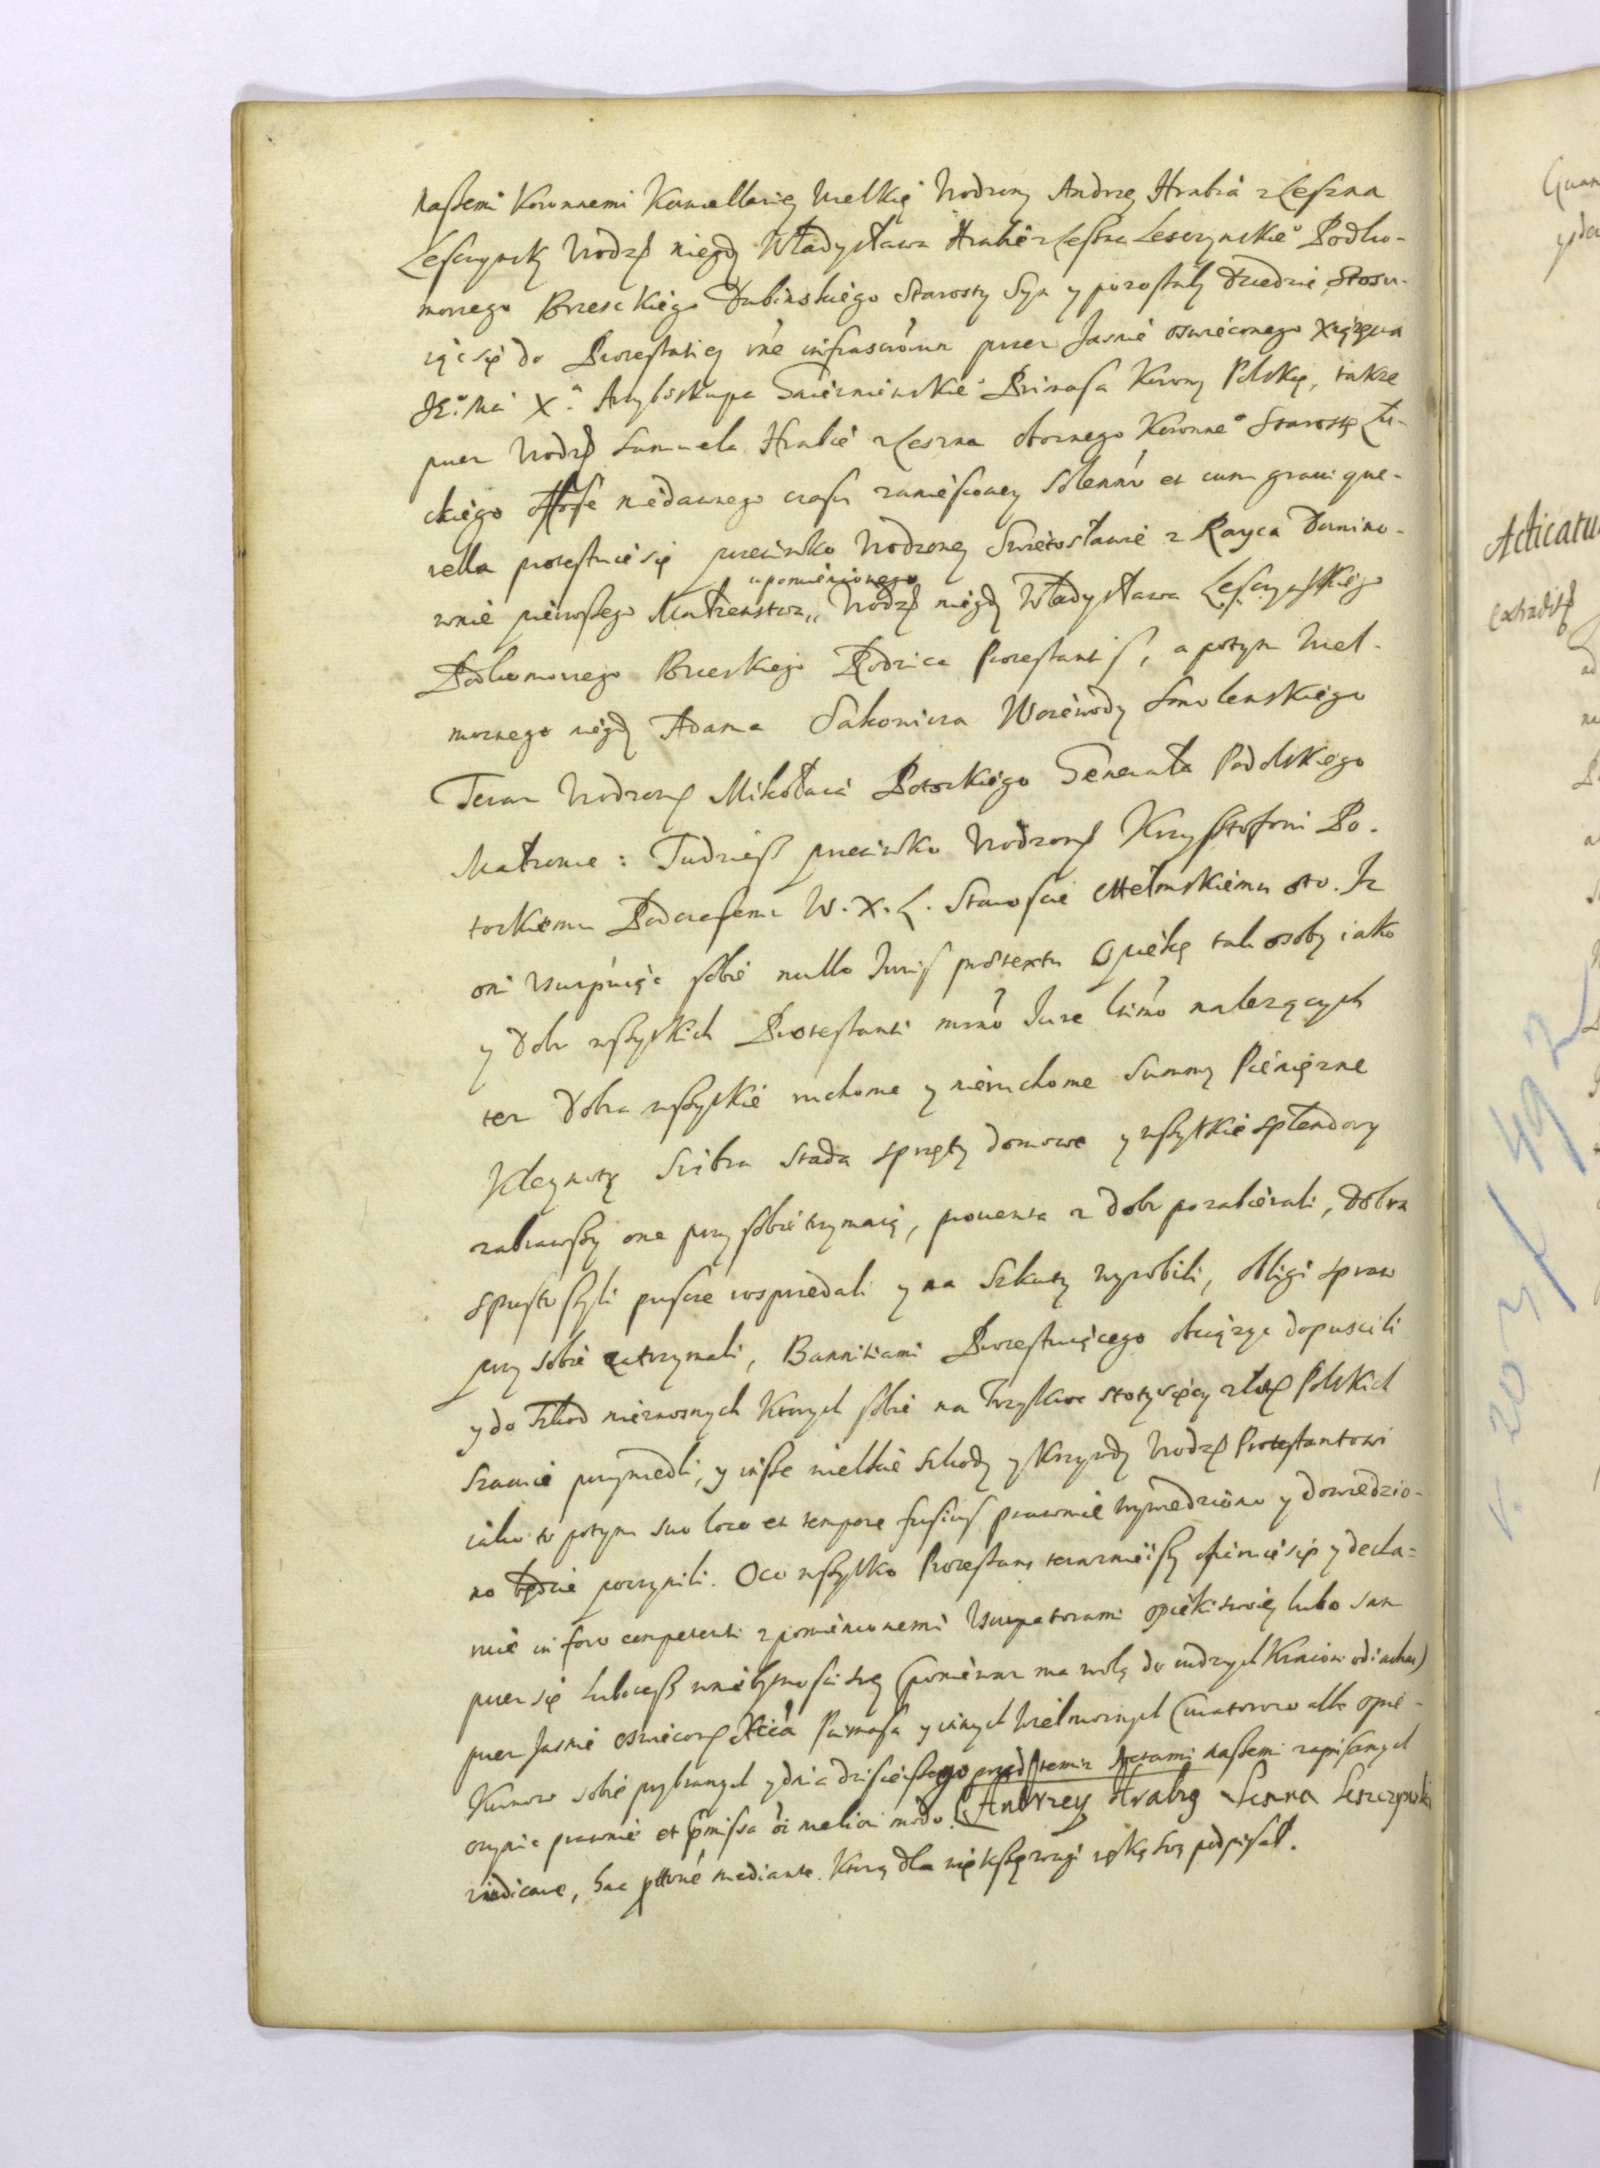 naßemi Koronnemi Kancellariey Wielkiej Urodzony Andrzey Hrabia z Leszna
Leszczynsky Urodz niegdy Władysława Hrabie z Leszna Lesczynskie° Podko-
morzego Brzesckiego Dubinskiego Starosty Syn y pozostały Dziedzic, Stosu-
iąc się do Protestatiey rne infrascrorum przez Jasnie oswieconego Xiążęcia
JE° Mci X.a Arcybiskupa Gnieznienskie° Primasa Korony Polskiey, także
przez Urodz Samuela Hrabie z Leszna obornego Koronne° Starostę Łu-
ckiego niedawnego czasu zaniesioney solenniter et cum graui que-
rella protestuie się przeciwko Urodzoney Swiętosławie z Rayca Dunino-
wnie pierwszego Małzenstwa,, Urodz niegdy Władysława Lesczynskiego
upomnionego
Podkomorzego Brzeskiego Rodzica Protestantis, a potym Wiel-
moznego niegdy Adama Sakowicza Woiewody Smolenskiego
Teraz Urodzone Mikołaia Potockiego Generała Podolskiego
Małzonce: Tudzież przeciwko Urodzone Krzysztofowi Po-
tockiemu Podczaszemu W. X. L. Staroscie Chełmskiemu oto. Iz
oni usurpuiąc sobie nullo Iuris prætextu Opiekę tak osoby iako
y Dobr wszystkich Protestanti Iure ltimo nalezących
ter Dobra wszystkie ruchome y nieruchome Summy Pieniężne
Kleynoty Srebra stada sprzęty domowe y wszytkie splendory
zabrawszy one przy sobie trzymaią, prouenta z dobr pozabierali, dobra
spustoszyli puscze rosprzedali y na szkuty wyrobili, obligi spraw
przy sobie zatrzymali, Bannitiami Protestuiącego obciążyc dopuscili
y do szkod nieznosnych ktorych sobie na Trzykroc stotysięcy złotych Polskich
Szacuie przywiedli, y insze wielkie szkody y Krzywdy Urodz Protestantowi
iako to potym suo loco et tempore fusius prawnie wywiedziono y dowiedzio-
no będzie poczynili. Oco wszytko Protestans teraznieiszy się y decla-
ruie in foro competenti zpomienionemi Usurpatorami opieki swoiey lubo sam
przez się Luboteß wniebytnosci swey (poniewaz ma wolą do cudzych kraiow odiachac)
przez Jasnie oswiecone Xcia Primasa y innych Wielmoznych Curatorow albo opie-
kunow sobie przybranych y dnia dzisieyszego przed temiz Actami naßemi zapisanych
czynic prawnie et præmissa oi meliori modo. Andrzey Hrabia z Leszna Leszczynski
vindicare, hac mediante. Ktorą dla większey wagi ręką swą podpisał.
Acticatu
Extradit